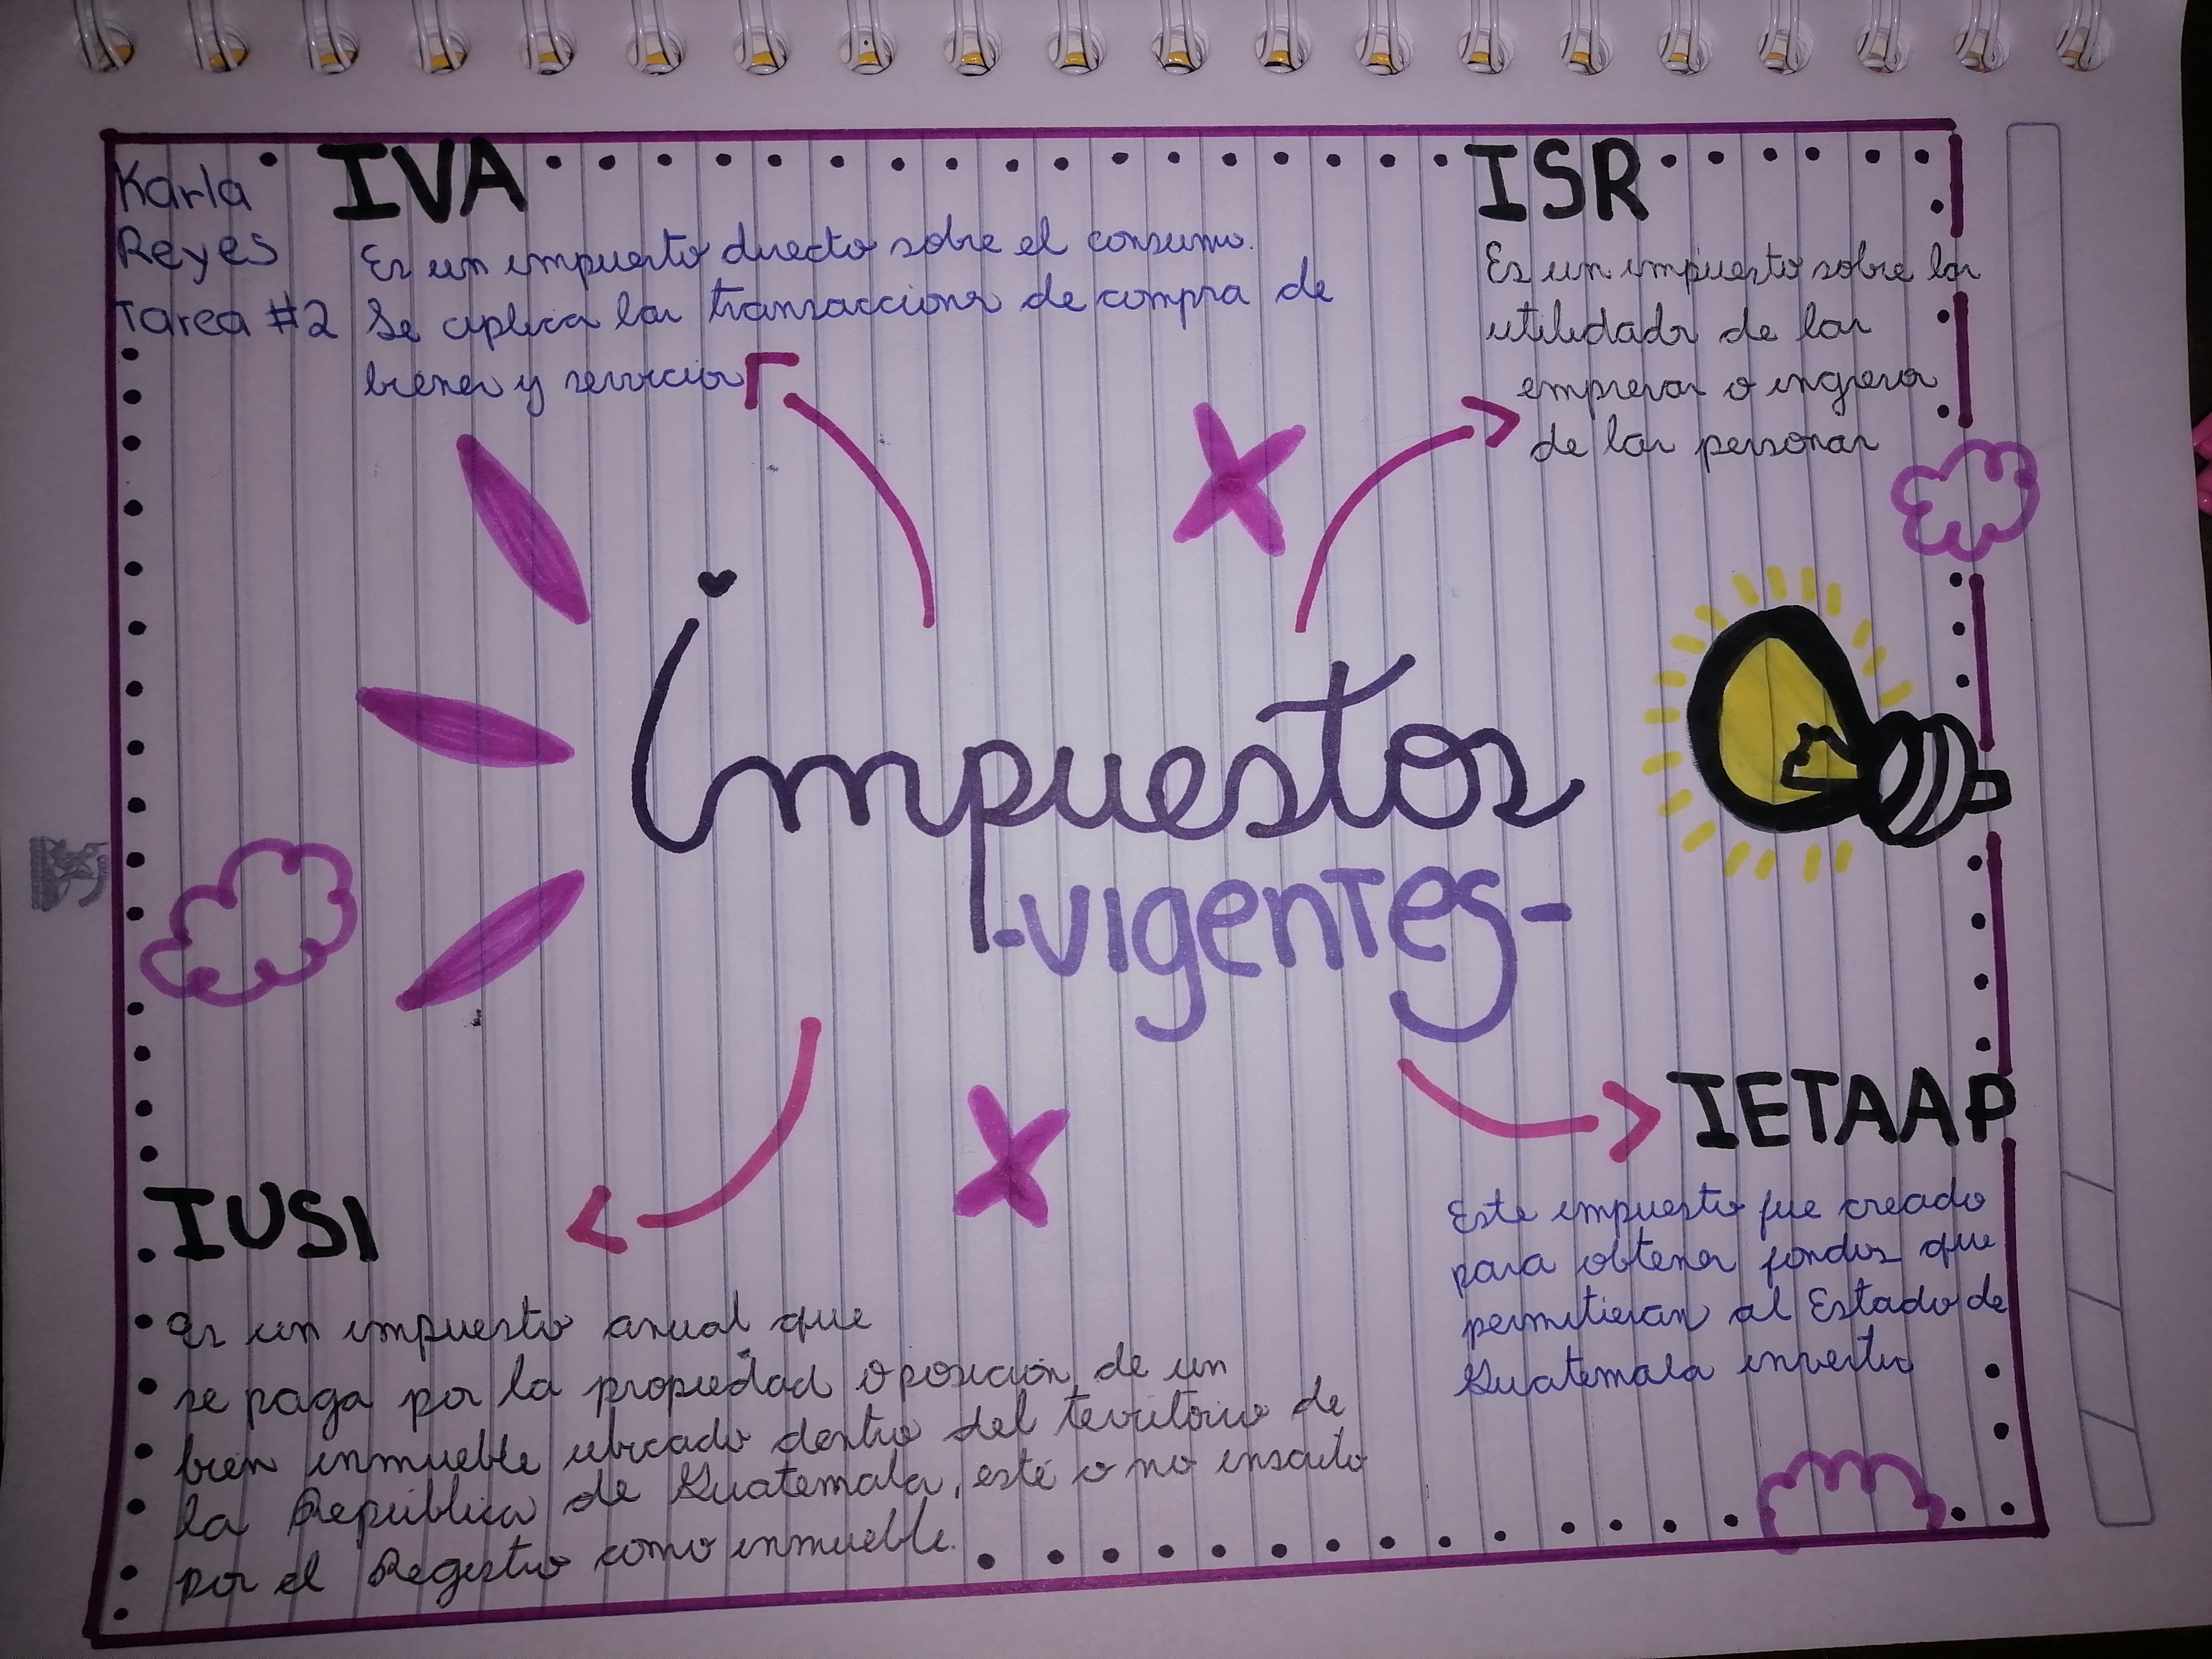 Karla
Reyes
Tarea #2
IVA
Es un impuesto directo sobre el consumo.
Se aplica las transacciones de compra de
bienes y servicios
ISR
Es un impuesto sobre las
utilidades de las
empresas o ingresos
de las personas
impuestos
-vigentes-
IETAAP
Este impuesto fue creado
para obtener fondos que
permitieran al Estado de
Guatemala invertir
IUSI
Es un impuesto anual que
se paga por la propiedad o posición de un
bien inmueble ubicado dentro del territorio de
la República de Guatemala, esté o no inscrito
por el Registro como inmueble.